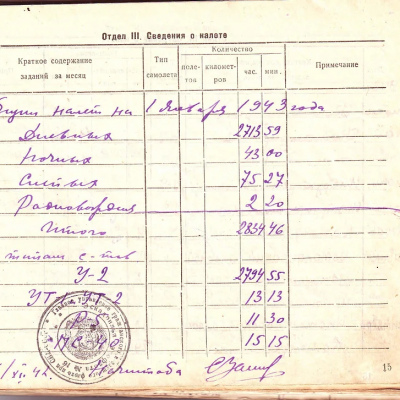 Отдел III. Сведения о налете
Краткое содержание заданий за месяц
Тип самолета
Количество
поле-тов
километ-ров
час.
мин.
Примечание
Общий налет на 1 января 1943 года
Дневных 2713 59
Ночных 43 00
Слепых 75 27
Радиовождения 2 20
Итого 2834 46
типам с-тов
У-2 2794 55
УТ-1 УТ-2 13 13
11 30
15 15
Начштаба
15